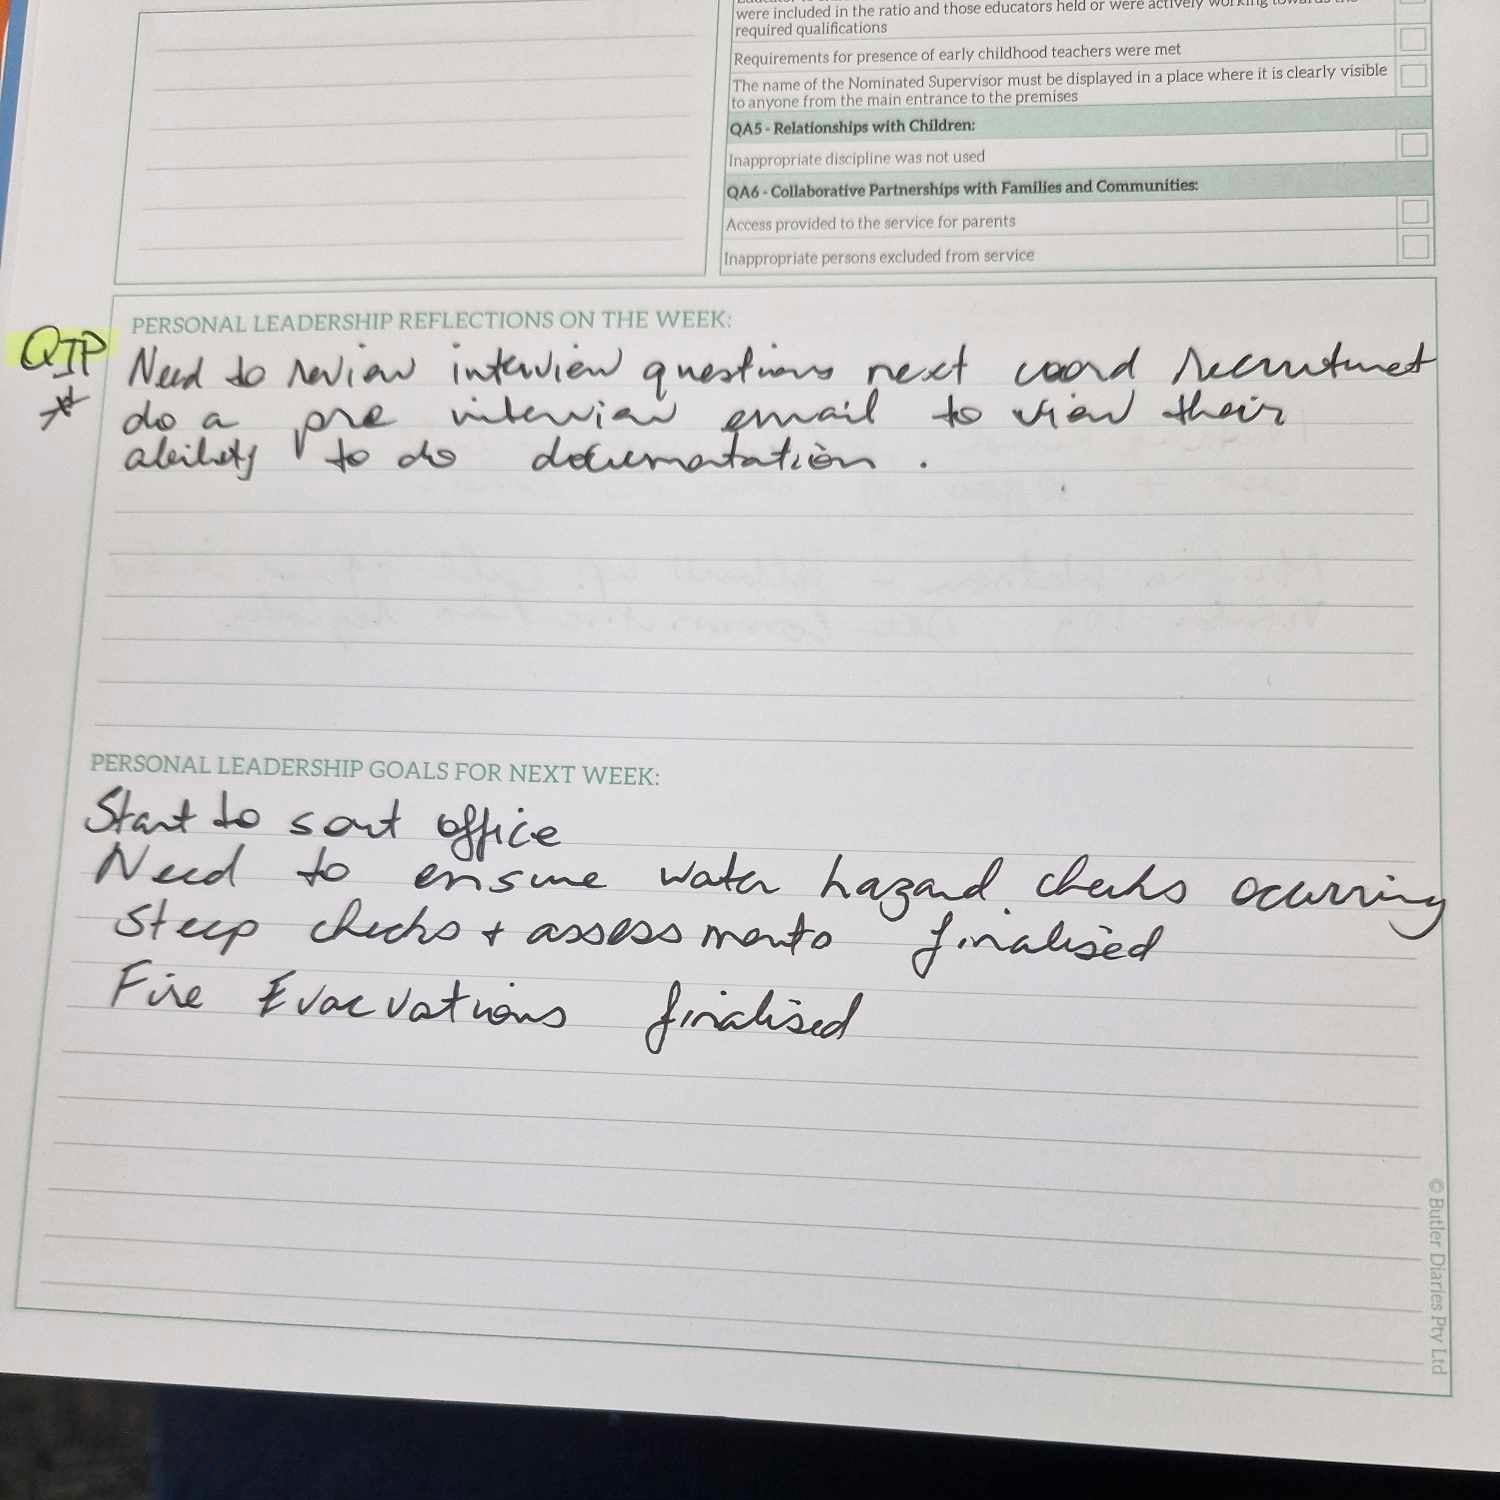 were included in the ratio and those educators held or were actively working towards the
required qualifications
Requirements for presence of early childhood teachers were met
The name of the Nominated Supervisor must be displayed in a place where it is clearly visible
to anyone from the main entrance to the premises
QA5 - Relationships with Children:
Inappropriate discipline was not used
QA6 - Collaborative Partnerships with Families and Communities:
Access provided to the service for parents
Inappropriate persons excluded from service
PERSONAL LEADERSHIP REFLECTIONS ON THE WEEK:
QIP Need to review interview questions next coord recruitmet
* do a pre interview email to view their
ability to do documentation .
PERSONAL LEADERSHIP GOALS FOR NEXT WEEK:
Start to sort office
Need to ensure water hazard checks ocurring
Steep checks + assessments finalised
Fire Evacuations finalised
© Butler Diaries Pty Ltd